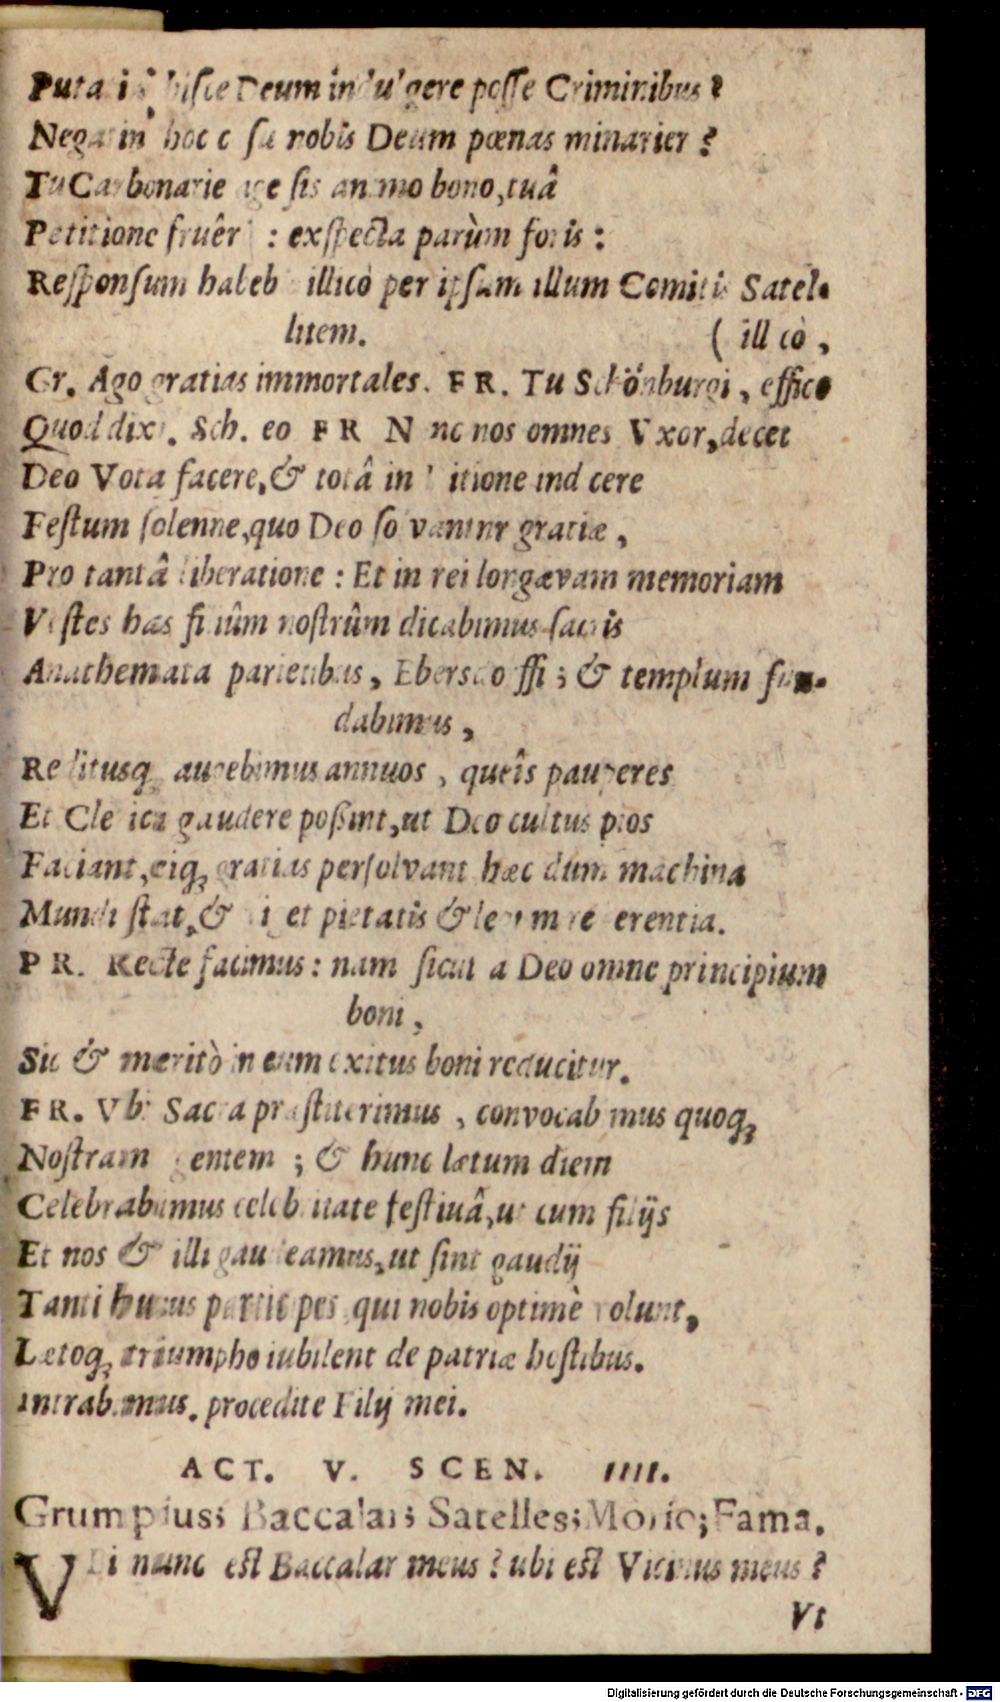 Putatis hisce Deum indulgere posse Criminibus?
Negatin hoc nobis Deum pœnas minarier?
Tu Carbonarie age sis animo bono, tuâ
Petitione fruêr : exspecta parùm foris :
Responsum habeb illicò per ipsum illum Comitis Satel-
litem. ( illicò,
Gr. Ago gratias immortales. FR. Tu Schönburgi, effice
Quod dixi. Sch. eo FR Nunc nos omnes Vxor, decet
Deo Vota facere, & totâ in itione indicere
Festum solenne, quo Deo solvantur gratiæ,
Pro tantâ liberatione : Et in rei longævam memoriam
Vestes has filiûm nostrûm dicabimus sacris
Anathemata parietibus, Ebersdorffi ; & templum fun-
dabimus,
Reditusq; augebimus annuos, queîs pauperes
Et Clerici gaudere poßint, ut Deo cultus pios
Faciant, eiq; gratias persolvant hæc dum machina
Mundi stat, & viget pietatis & legum reverentia.
PR. Recte facimus : nam sicut a Deo omne principium
boni,
Sic & meritò in eum exitus boni reducitur.
FR. Vbi Sacra præstiterimus, convocabimus quoq;
Nostram gentem ; & hunc lætum diem
Celebrabimus celebritate festivâ, ut cum filijs
Et nos & illi gaudeamus, ut sint gaudij
Tanti huius participes qui nobis optimè volunt,
Lætoq; triumpho iubilent de patriæ hostibus.
Intrabimus. procedite Filij mei.
ACT. V. SCEN. IIII.
Grumpius; Baccalari Satelles; Morio; Fama.
VBi nunc est Baccalar meus ? ubi est Vicinus meus ?
Vt
Digitalisierung gefördert durch die Deutsche Forschungsgemeinschaft - DFG